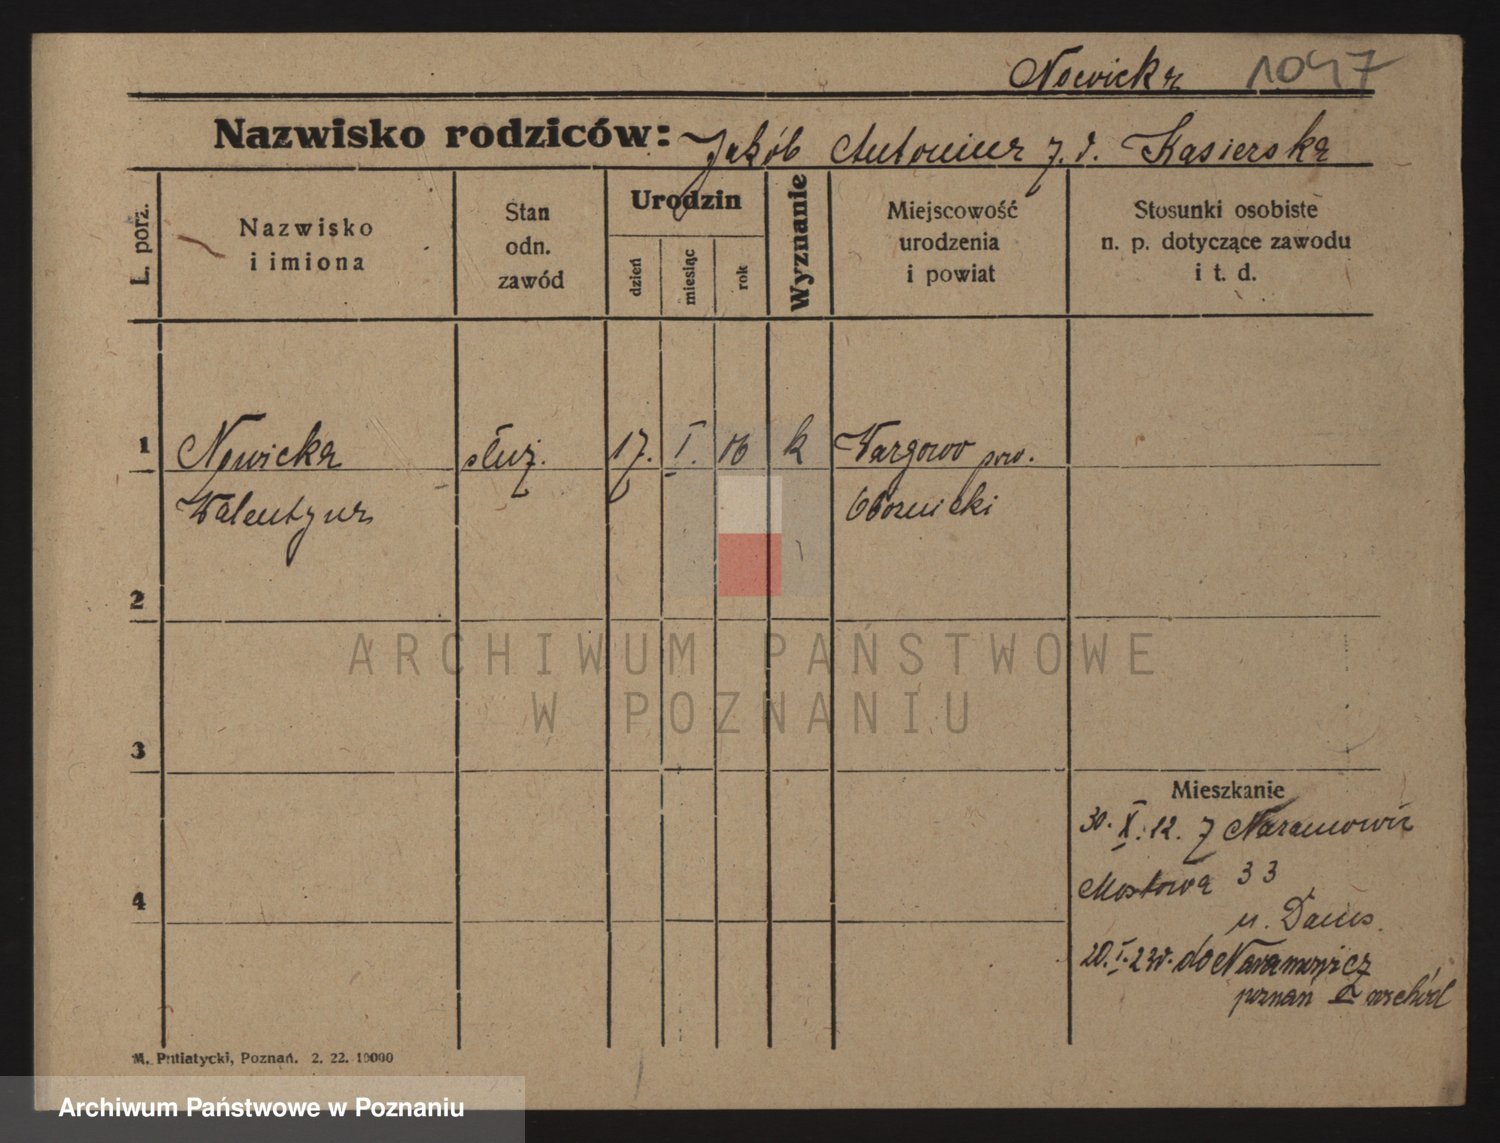 Nowicka 1047
Nazwisko rodziców: Jakób Antonina z. d. Kasierska
L. porz.
Nazwisko
i imiona
Stan
odn.
zawód
Urodzin
dzień
miesiąc
rok
Wyznanie
Miejscowość
urodzenia
i powiat
Stosunki osobiste
n. p. dotyczące zawodu
i t. d.
1 Nowicka służ. 17. I. 06 k Wargowo pow.
Walentyna Obornicki
2
ARCHIWUM PAŃSTWOWE
W POZNANIU
3
Mieszkanie
30. X. 12. z Naramowic
Mostowa 33
4
u.
20. I. 23r. do Naramowicz
poznań wschód
M. Putiatycki, Poznań. 2. 22. 10000
Archiwum Państwowe w Poznaniu